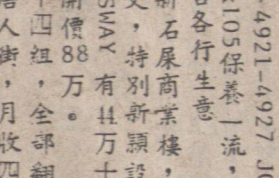 4921-4927 JO
105保養一流，
各行生意
新石屎商業樓，
，特別新穎設
SWAY 有44万十
開價88万。
十四組，全部翻
唐人街，月收四